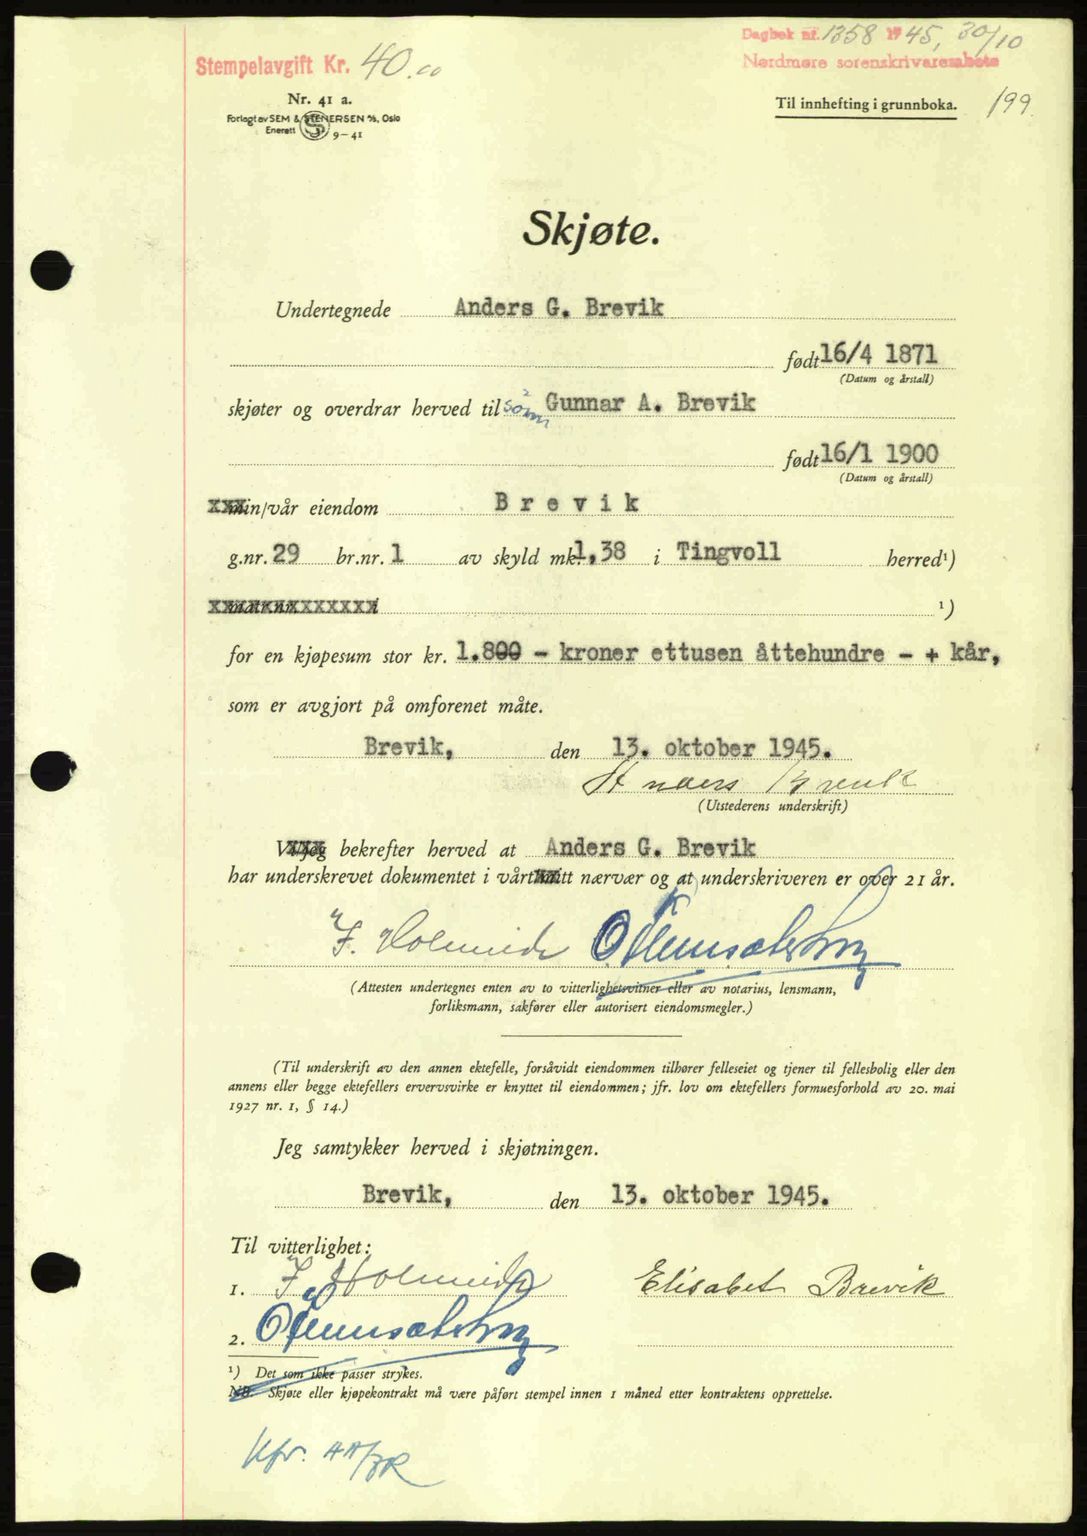 Stempelavgift Kr. 40.00
Dagbok nr. 1358 1945, 30/10
Nordmøre sorenskriverembete
Nr. 41 a.
Forlagt av SEM & STENERSEN A/S, Oslo
Enerett 9-41
Til innhefting i grunnboka. 199
Skjøte.
Undertegnede Anders G. Brevik
født 16/4 1871
(Datum og årstall)
skjøter og overdrar herved til sönn Gunnar A. Brevik
født 16/1 1900
(Datum og årstall)
xxxmin/vår eiendom Brevik
g.nr. 29 br.nr. 1 av skyld mk. 1,38 i Tingvoll herred¹)
xxxxxxxxxxxxx ¹)
for en kjøpesum stor kr. 1.800 - kroner ettusen åttehundre - + kår,
som er avgjort på omforenet måte.
Brevik, den 13. oktober 1945.
Anders Brevik
(Utstederens underskrift)
Vi/jeg bekrefter herved at Anders G. Brevik
har underskrevet dokumentet i vårt/mitt nærvær og at underskriveren er over 21 år.
(Attesten undertegnes enten av to vitterlighetsvitner eller av notarius, lensmann,
forliksmann, sakfører eller autorisert eiendomsmegler.)
(Til underskrift av den annen ektefelle, forsåvidt eiendommen tilhører felleseiet og tjener til fellesbolig eller den
annens eller begge ektefellers ervervsvirke er knyttet til eiendommen; jfr. lov om ektefellers formuesforhold av 20. mai
1927 nr. 1, § 14.)
Jeg samtykker herved i skjøtningen.
Brevik, den 13. oktober 1945.
Til vitterlighet:
1. Elisabet Brevik
2.
¹) Det som ikke passer strykes.
NB. Skjøte eller kjøpekontrakt må være påført stempel innen 1 måned etter kontraktens opprettelse.
Kfr.